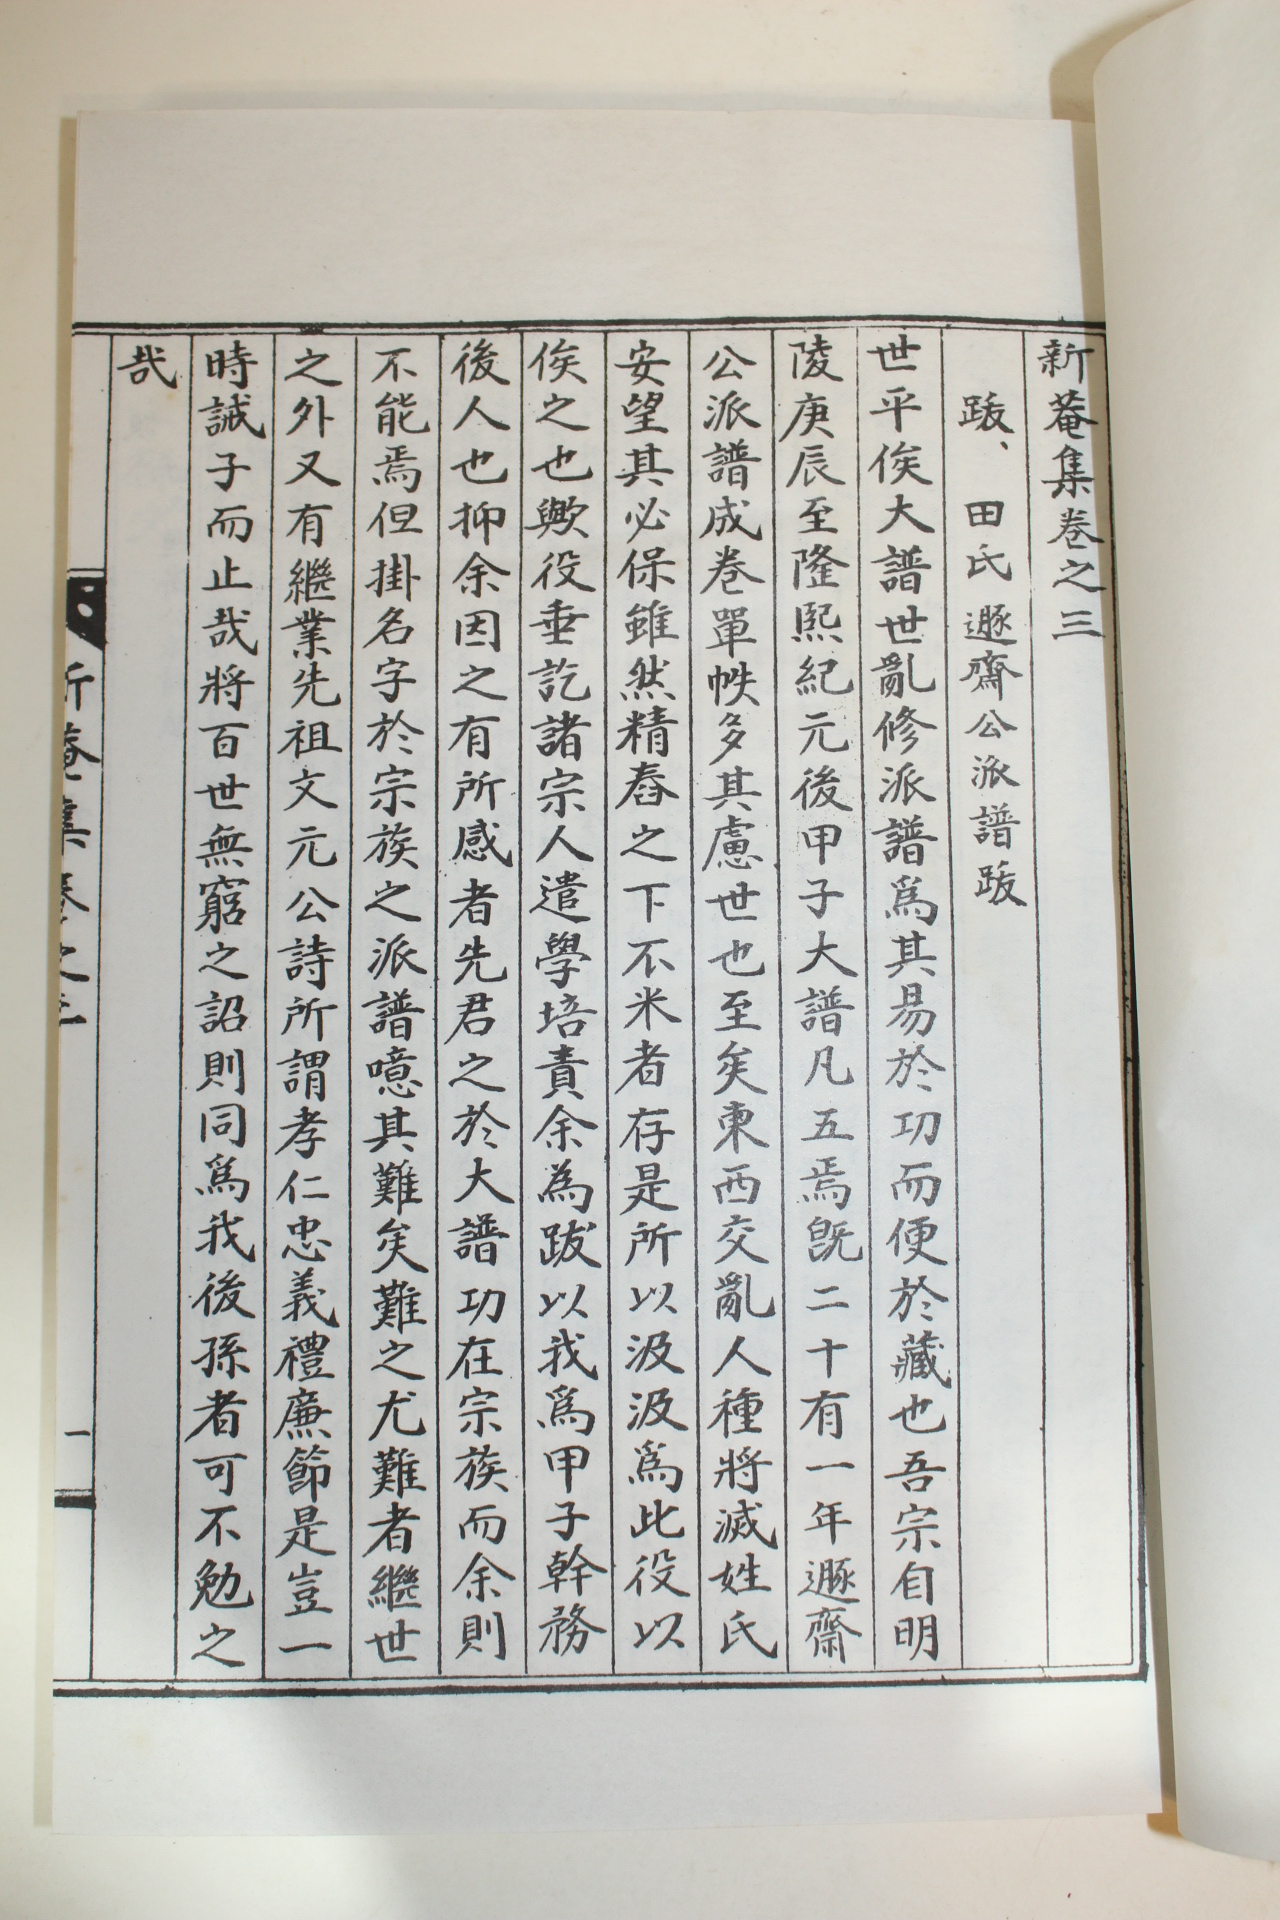 新菴集卷之三
跋、 田氏遯齋公派譜跋
世平俟大譜世亂修派譜爲其易於功而便於藏也吾宗自明
陵庚辰至隆熙紀元後甲子大譜凡五焉旣二十有一年遯齋
公派譜成卷單帙多其慮世也至矣東西交亂人種將滅姓氏
安望其必保雖然精舂之下不米者存是所以汲汲爲此役以
俟之也歟役垂訖諸宗人遣學培責余為跋以我爲甲子幹務
後人也抑余因之有所感者先君之於大譜功在宗族而余則
不能焉但掛名字於宗族之派譜噫其難矣難之尤難者繼世
之外又有繼業先祖文元公詩所謂孝仁忠義禮廉節是豈一
時誡子而止哉將百世無窮之詔則同爲我後孫者可不勉之
哉
新菴集卷之三
一